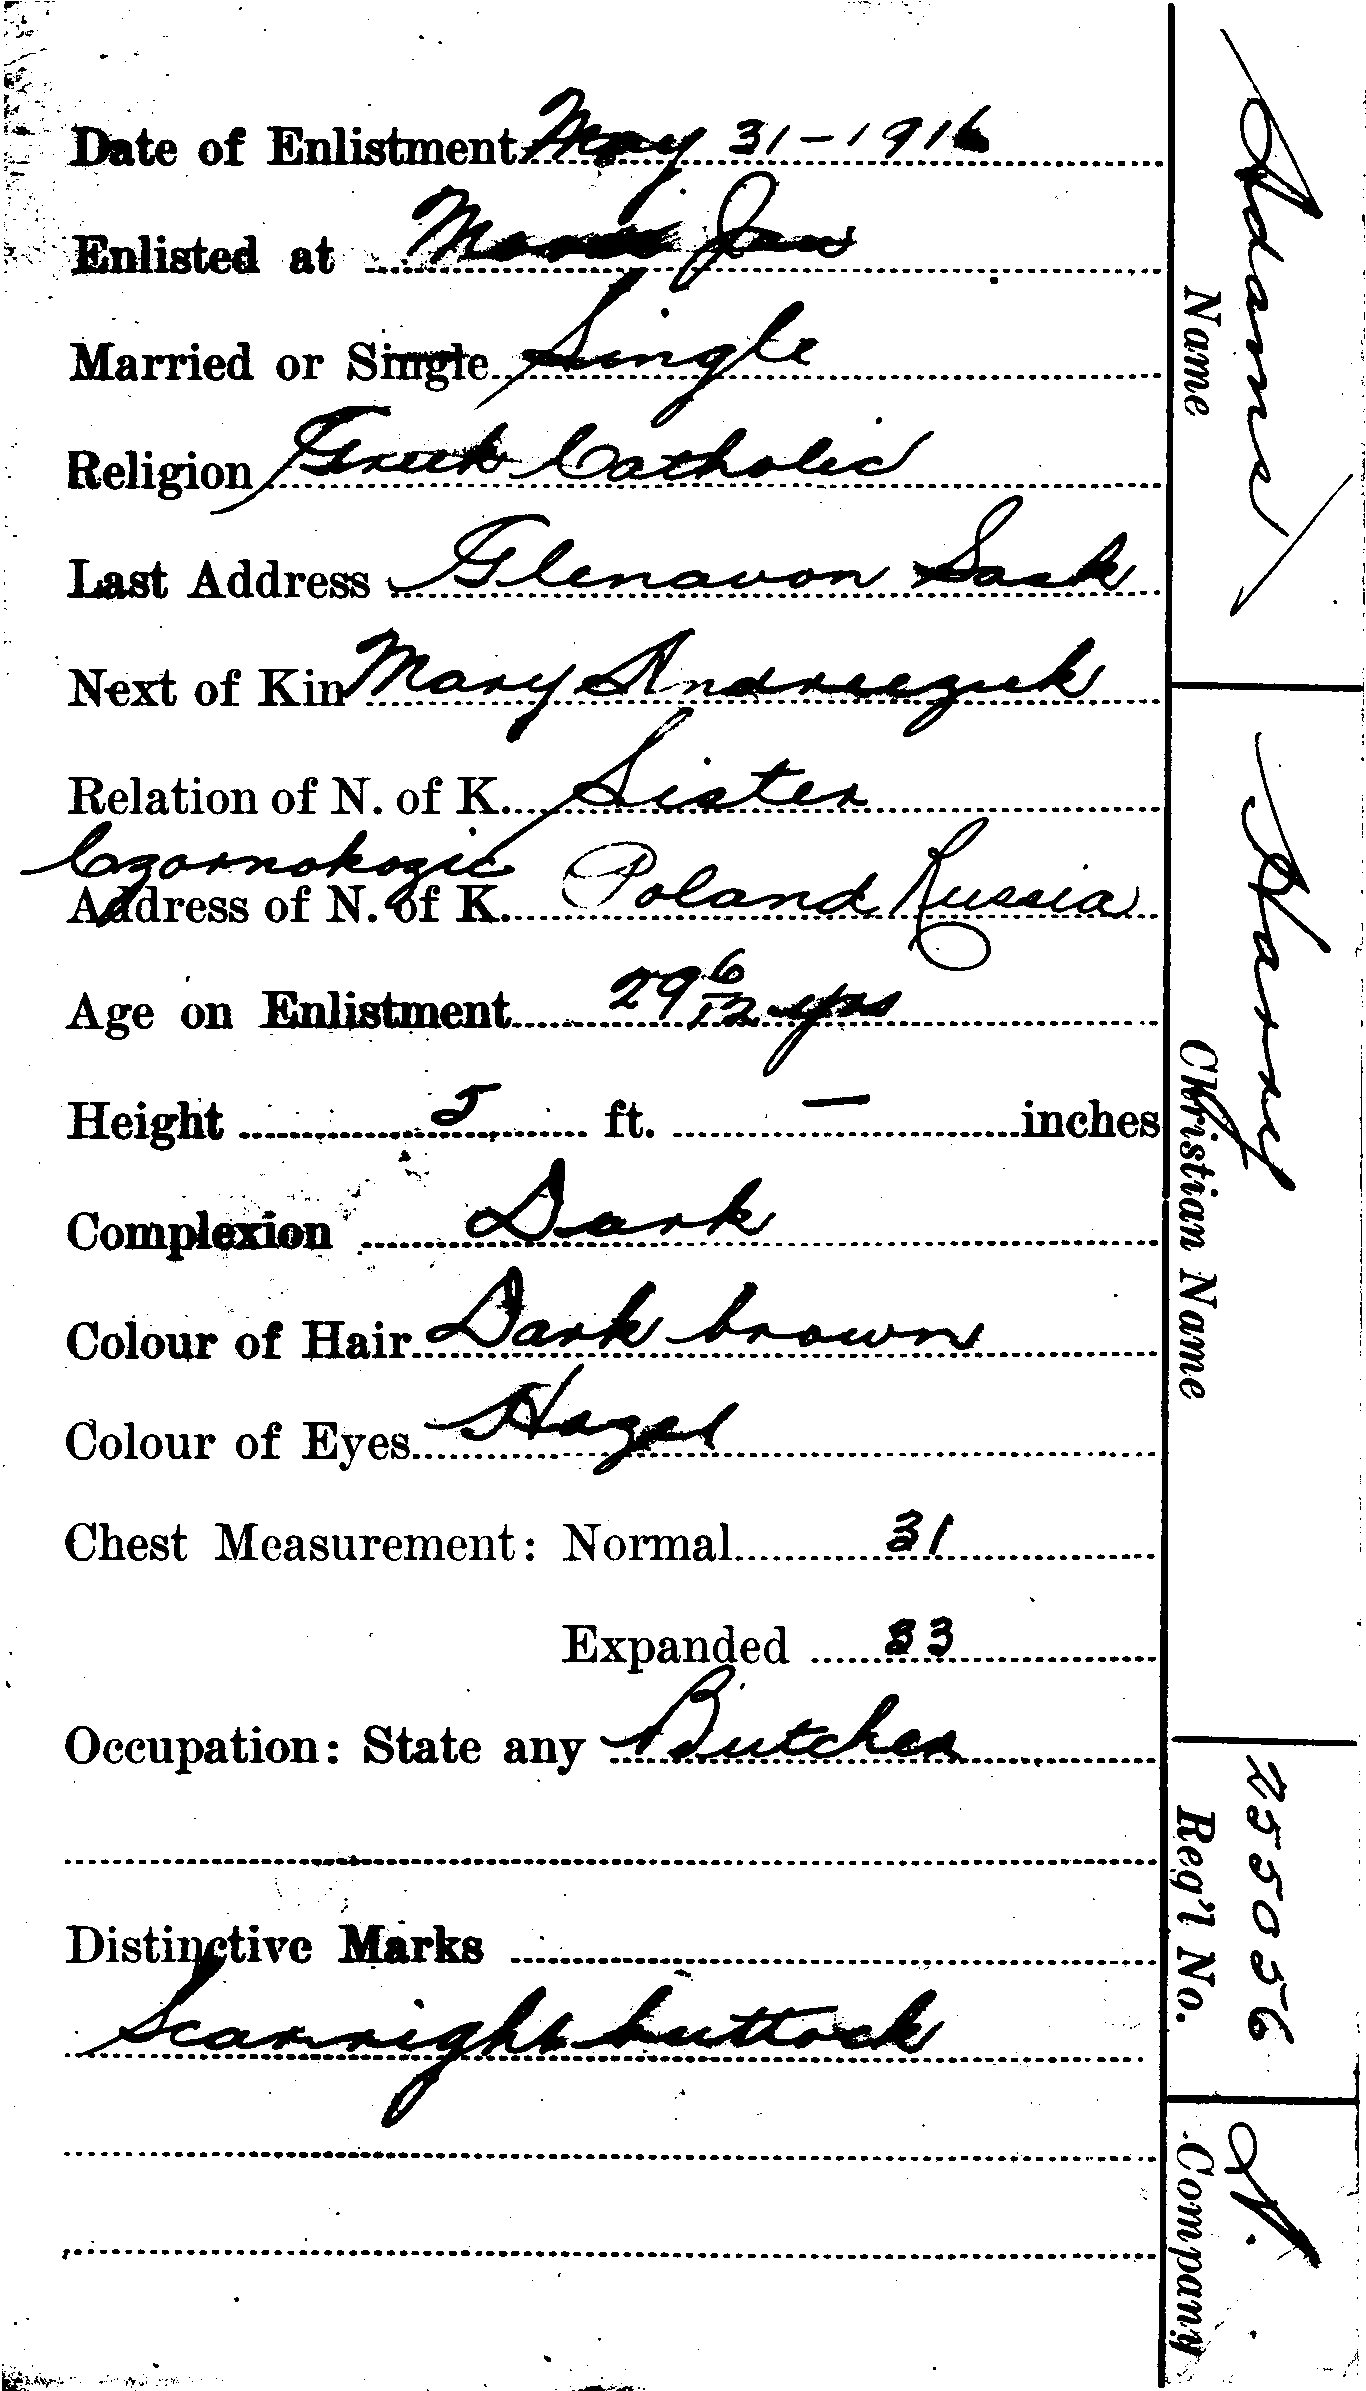 Date of Enlistment May 31-1916
Enlisted at Moose Jaw
Married or Single Single
Religion Greek Catholic
Last Address Glenavon Sask
Next of Kin Mary Andreezuk
Relation of N. of K. Sister
Czornokozic
Address of N. of K. Poland Russia
Age on Enlistment 29 6/12 yrs
Height 5 ft. — inches
Complexion Dark
Colour of Hair Dark brown
Colour of Eyes Hazel
Chest Measurement: Normal 31
Expanded 33
Occupation: State any Butcher
Distinctive Marks
Scar right buttock
Adams
Name
Harry
Christian Name
255056
Reg'l No.
A.
Company